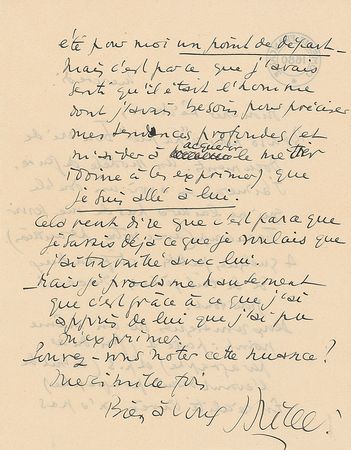 été pour moi un point de départ –
mais c'est parce que j'avais
senti qu'il était l'homme
dont j'avais besoin pour préciser
mes tendances profondes (et
m'aider à acquérir le métier
idoine à les exprimer) que
je suis allé à lui
Cela veut dire que c'est parce que
je savais déjà ce que je voulais que
j'ai travaillé avec lui.
Mais je proclame hautement
que c'est grâce à ce que j'ai
appris de lui que j'ai pu
m'exprimer.
Pouvez-vous noter cette nuance?
Merci mille fois
Bien à vous